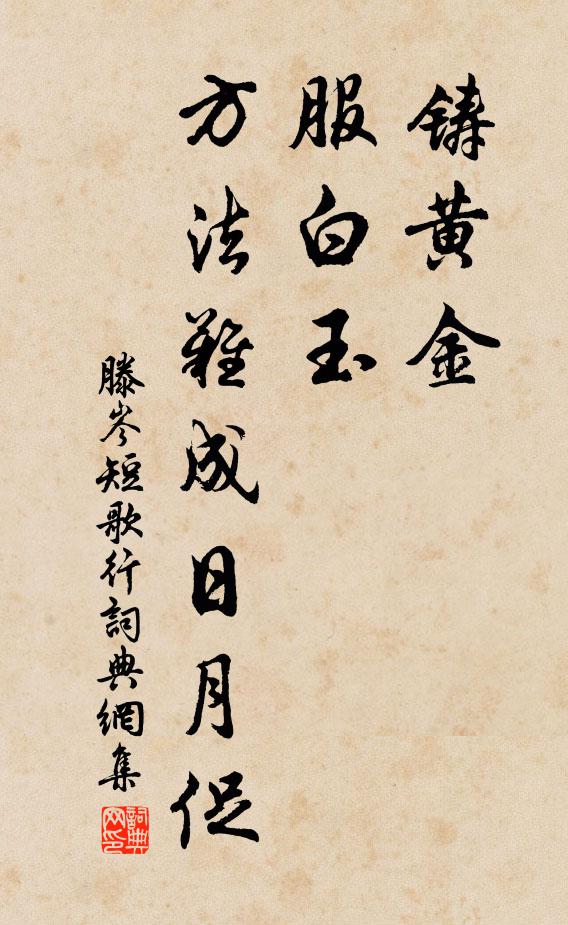 鑄黃金
服白玉
方法難成日月促
滕岑短歌行詞典網集
詞典網印